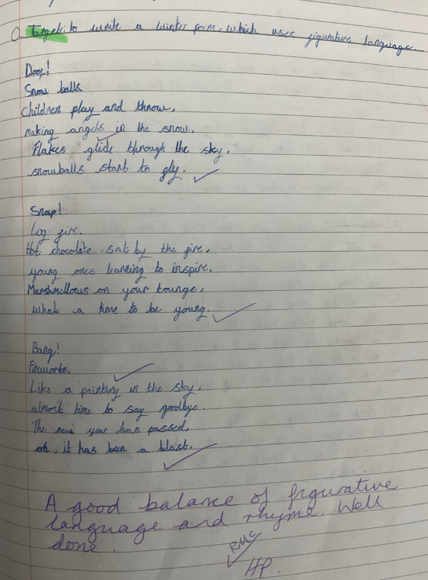 Target: to write a winter poem, which uses figurative language
Doof!
Snow balls
Children play and throw,
making angels in the snow.
Flakes glide through the sky,
snowballs start to fly.
Snap!
Log fire.
Hot chocolate sat by the fire,
young ones learning to inspire.
Marshmallows on your tounge,
what a time to be young.
Bang!
Fireworks.
Like a painting in the sky,
almost time to say goodbye.
The new year has passed,
oh, it has been a blast.
A good balance of figurative
language and rhyme. Well
done.
HP